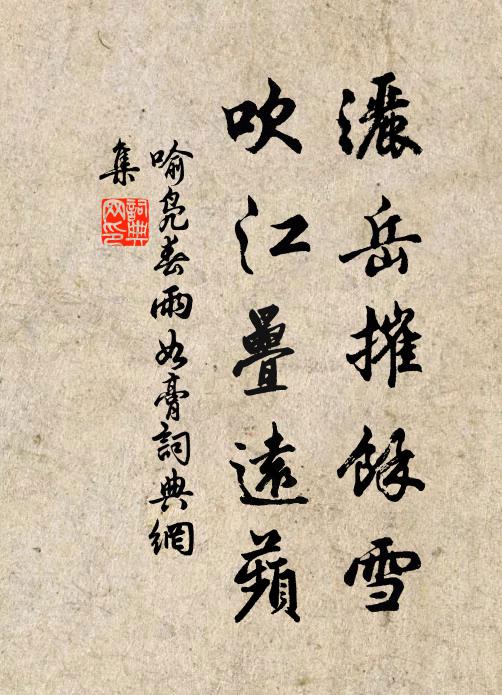 灑岳摧餘雪
吹江疊遠蘋
喻鳧春雨如膏詞典網
集
詞典
网印